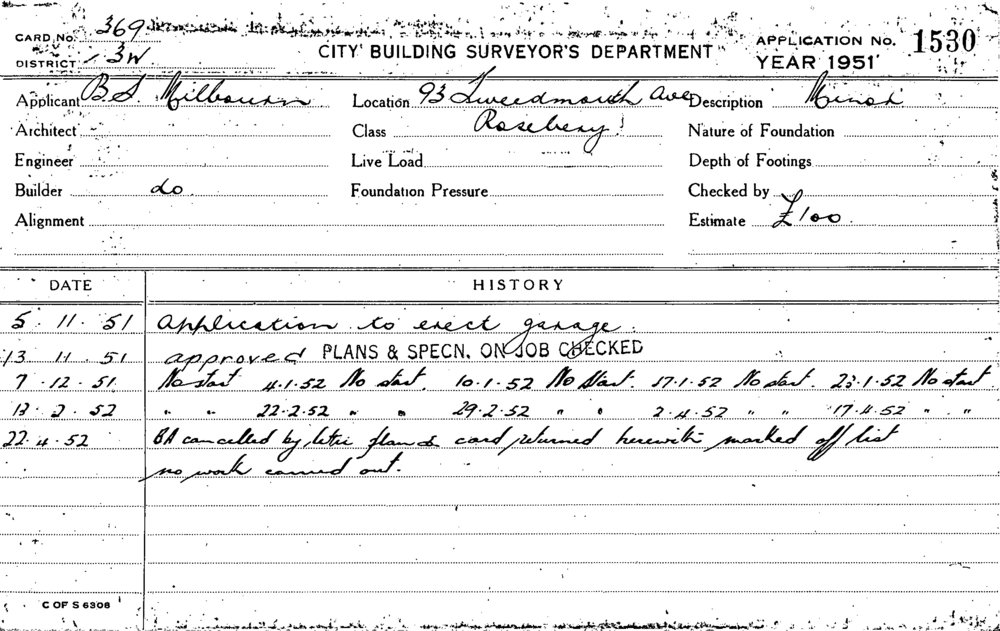 CARD No. 369
DISTRICT 3W
CITY BUILDING SURVEYOR'S DEPARTMENT
APPLICATION No. 1530
YEAR 1951
Applicant B. S. Milbourn Location 93 Tweedmouth Ave Description Minor
Architect Class Rosebery Nature of Foundation
Engineer Live Load Depth of Footings
Builder do Foundation Pressure Checked by
Alignment Estimate £100.
DATE HISTORY
5. 11. 51 Application to erect garage.
13 11. 51 approved PLANS & SPECN. ON JOB CHECKED
7. 12. 51. No start 4.1.52 No start. 10.1.52 No Start. 17.1.52 No start. 23.1.52 No start.
13. 2. 52 " " 22.2.52 " " 29.2.52 " " 2.4.52 " " 17.4.52 " "
22.4.52 BA cancelled by letter plan & card returned herewith marked off list
no work carried out.
C OF S 6308